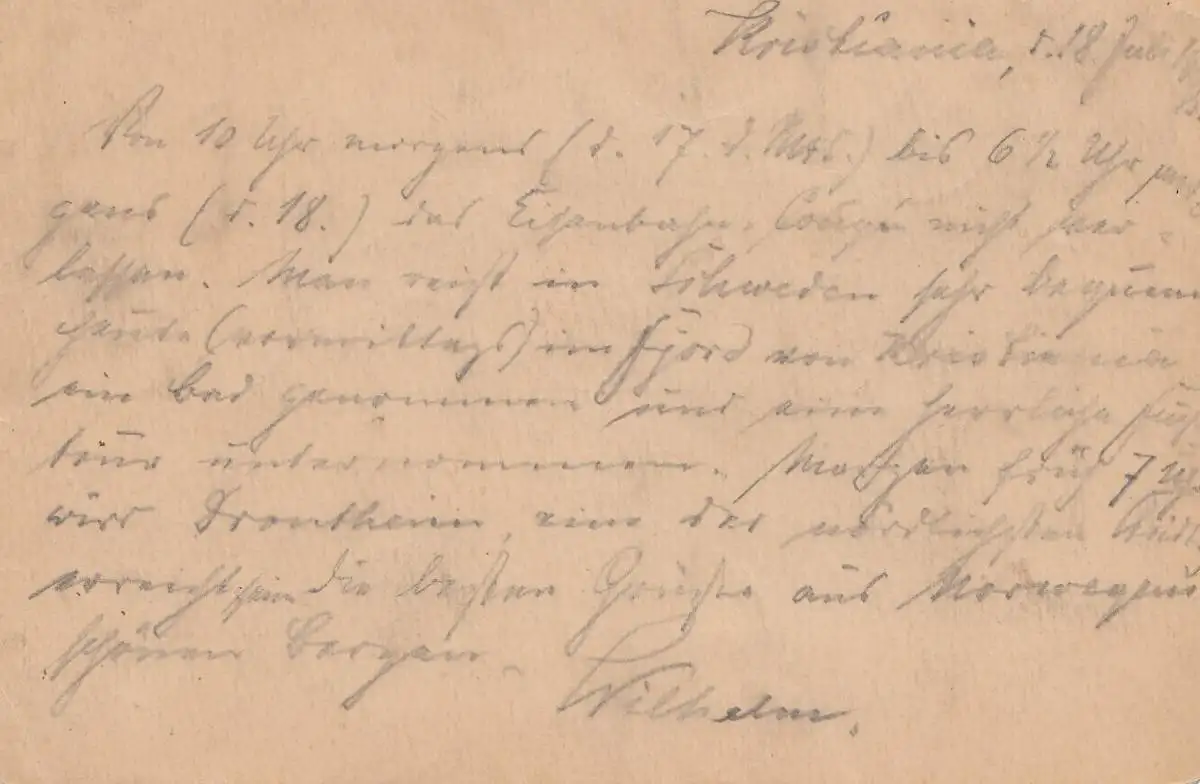 Kristiania, d. 18. Juli
Von 10 Uhr morgens (d. 17. d. Mts.) bis 6 1/2 Uhr mor-
gens (d. 18.) das Eisenbahn-Coupé nicht ver-
lassen. Man reist in Schweden sehr bequem
heute (vormittags) im Fjord von Kristiania
ein Bad genommen und eine herrliche Fuß-
tour unternommen. Morgen früh 7 Uhr
wird Drontheim, eine der nördlichsten Städte
erreicht sein. Die besten Grüße aus Norwegens
schönen Bergen.
Wilhelm.